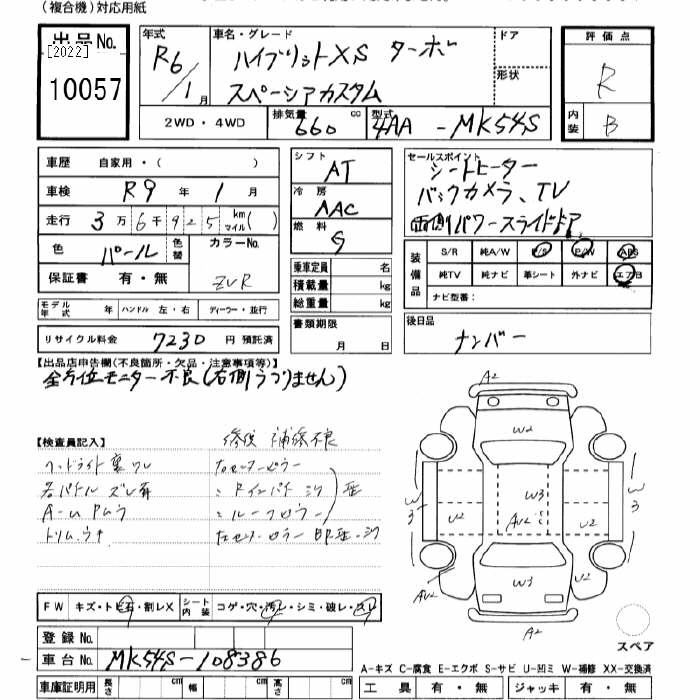 (複合機)対応用紙
出品No.
[2022]
10057
年式 R6/1月
車名・グレード
ハイブリットXS ターボ
スペーシアカスタム
ドア
形状
評価点
R
内装 B
2WD・4WD
排気量 660 cc
型式 4AA - MK54S
車歴 自家用・( )
車検 R9 年 1 月
走行 3万6千925 km マイル( )
色 パール 色替
カラーNo. ZVR
保証書 有・無
モデル年式 年 ハンドル 左・右 ディーラー・並行
リサイクル料金 7230 円 預託済
シフト AT
冷房 AAC
燃料 G
乗車定員 名
積載量 kg
総重量 kg
書類期限 月 日
セールスポイント
シートヒーター
バックカメラ、TV
両側パワースライドドア
装備品
S/R 純A/W P/S P/W ABS
純TV 純ナビ 革シート 外ナビ エアB
ナビ型番:
後日品
ナンバー
【出品店申告欄(不良箇所・欠品・注意事項等)】
全方位モニター不良(右側うつりません)
【検査員記入】
修復 補修不良
ヘッドライト裏ワレ
各パネル ズレ有
トリムウキ
FW キズ・トビ石・割レX
シート内装 コゲ・穴・汚レ・シミ・破レ・スレ
登録No.
車台No. MK54S-108386
車庫証明用 長さ cm 幅 cm 高さ cm
A2
W2
W3
W3
U2
AU2
U2
W3
W3
AU2
U2
A2
スペア
A-キズ C-腐食 E-エクボ S-サビ U-凹ミ W-補修 XX-交換済
工具 有・無 ジャッキ 有・無